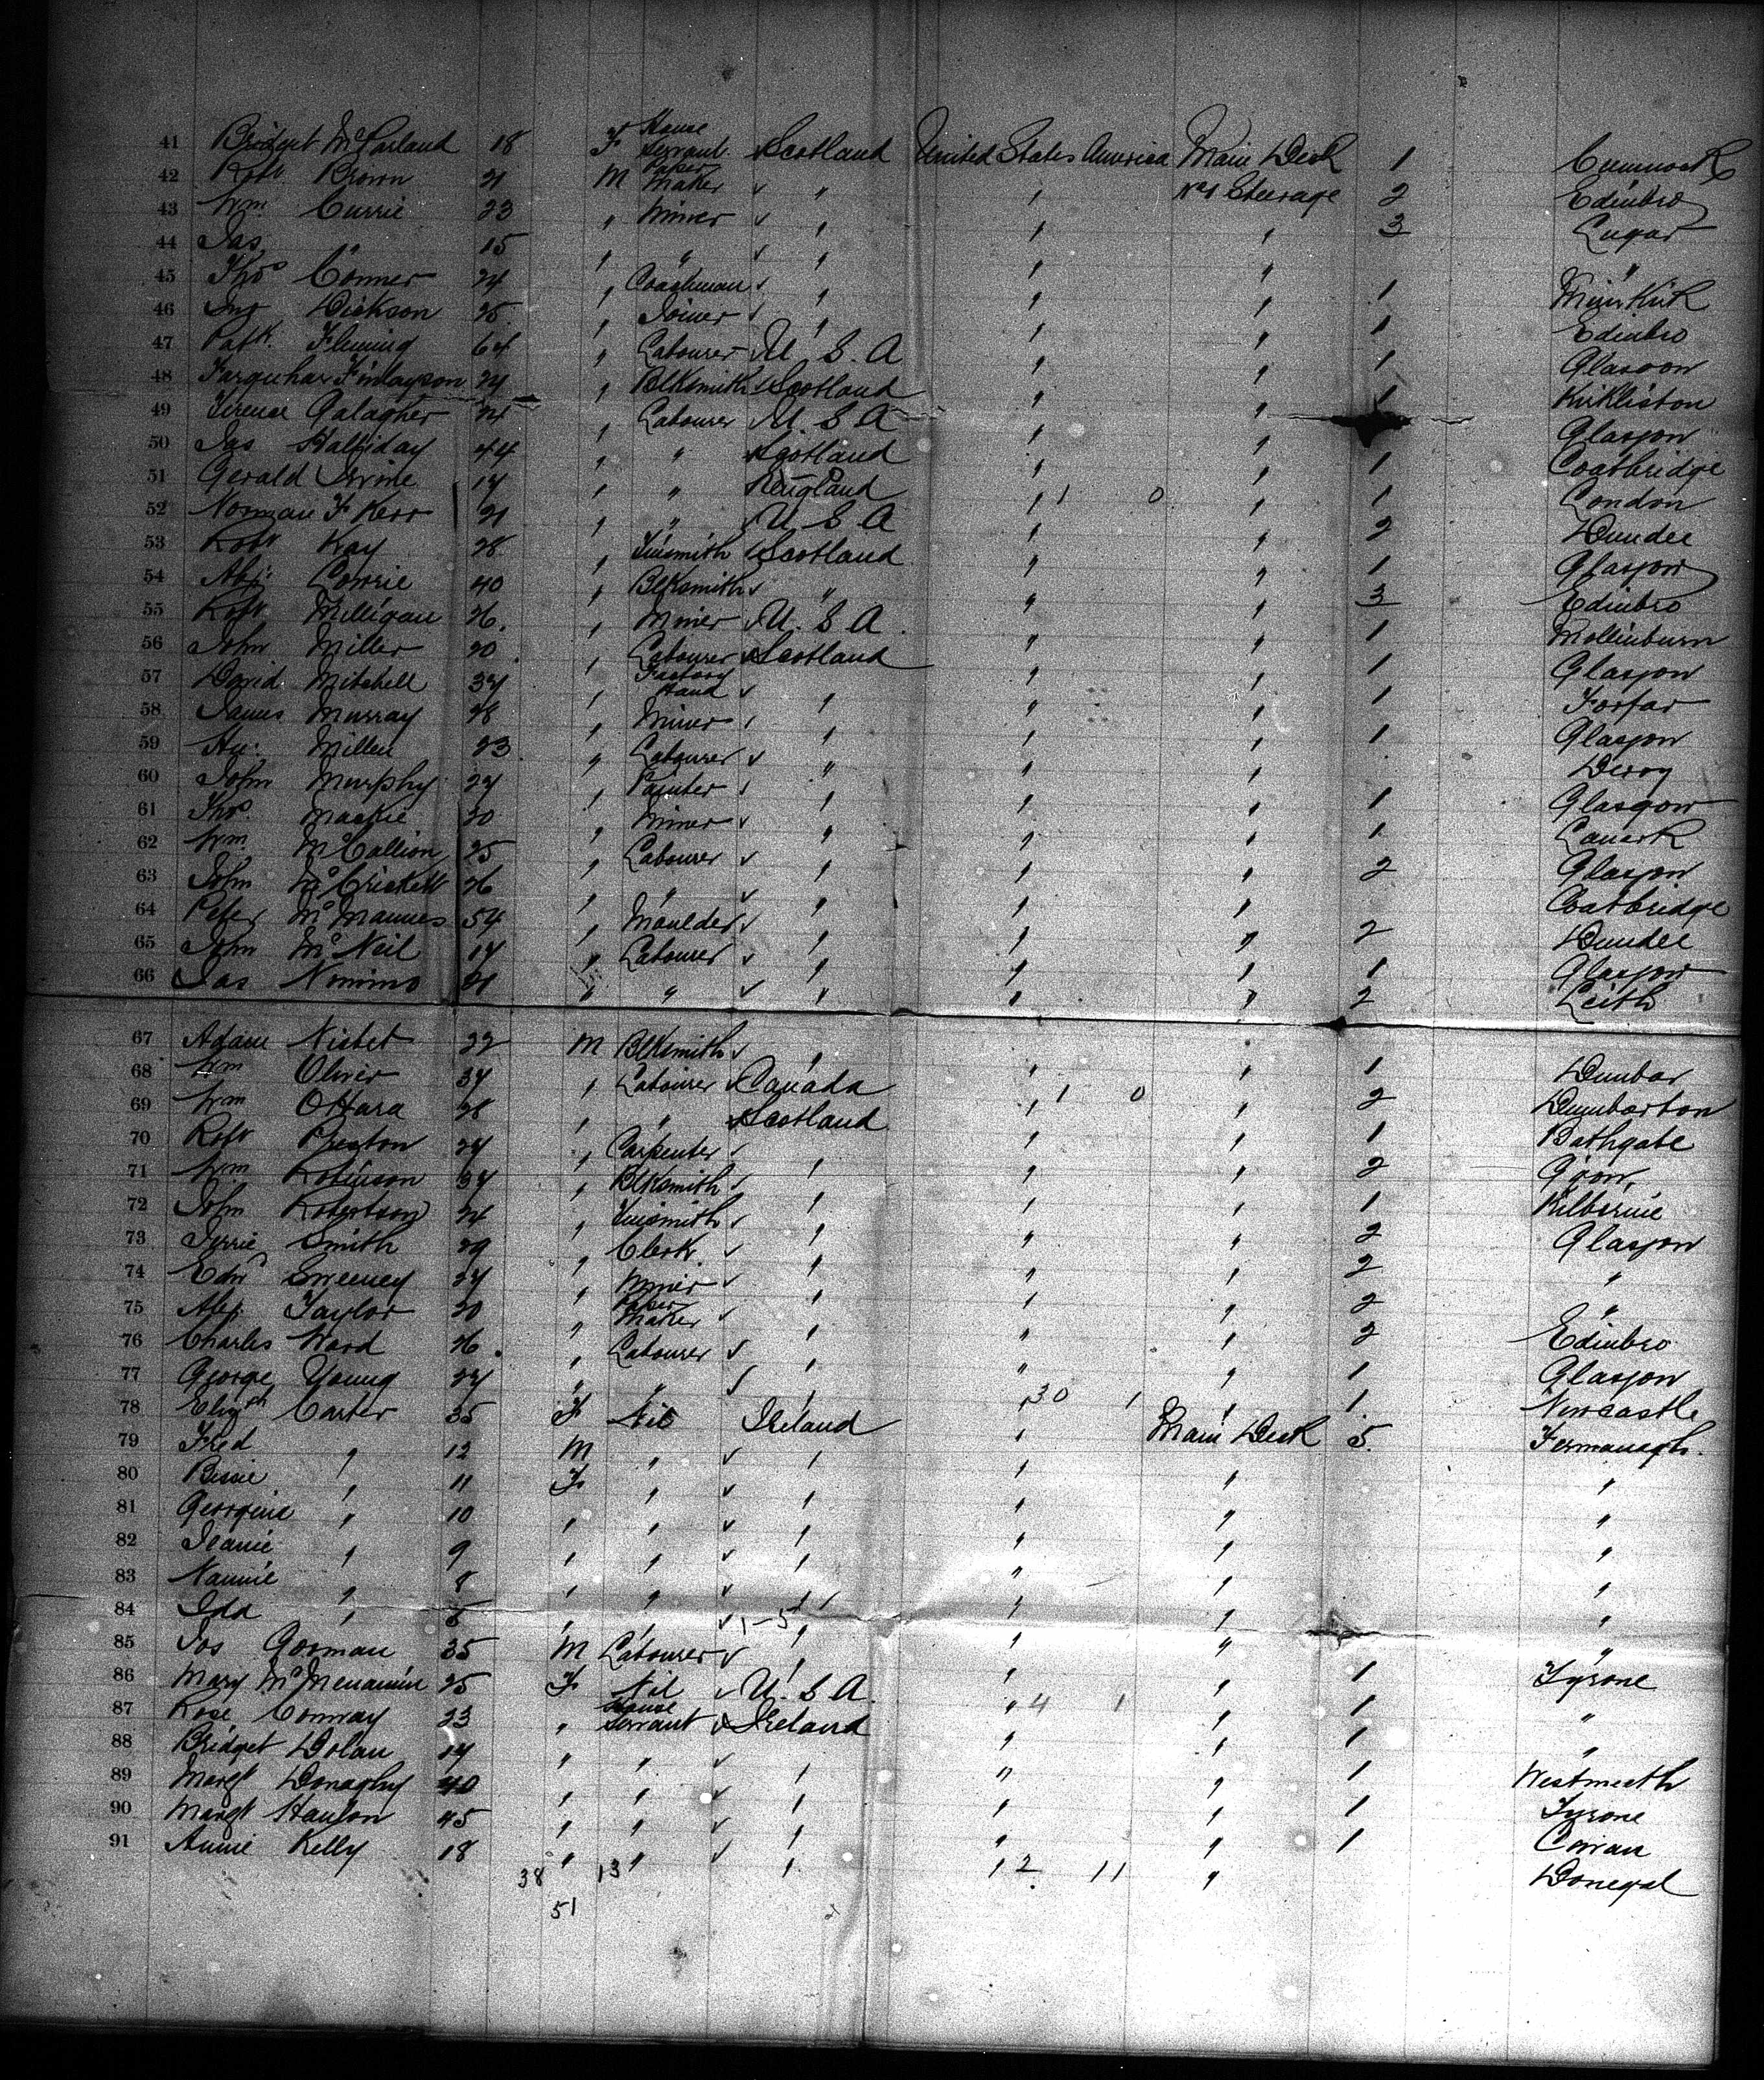 41 Bridget McParland 18 F House Servant Scotland United States America Main Deck 1 Cumnock
42 Robt Brown 21 M Paper Maker " " No 1 Steerage 2 Edinbro
43 Wm Currie 23 " Miner " " " 3 Lugar
44 Jas " 15 " " " " " "
45 Thos Conner 24 " Coachman " " " 1 Muirkirk
46 Jno Dickson 25 " Joiner " " " 1 Edinbro
47 Patk Fleming 64 " Labourer U.S.A " " 1 Glasgow
48 Farquhar Finlayson 24 " Blksmith Scotland " " 1 Kirkliston
49 Terence Galagher " Labourer U.S.A " " Glasgow
50 Jas Halliday 44 " " Scotland " " 1 Coatbridge
51 Gerald Irvine " " England " 1 0 " 1 London
52 Norman F Kerr 21 " " U S A " " 2 Dundee
53 Robt Kay 28 " Tinsmith Scotland " " 1 Glasgow
54 Alex Lowrie 40 " Blksmith " " " 3 Edinbro
55 Robt Milligan 26 " Miner U.S.A. " " 1 Mollinburn
56 John Miller 20 " Labourer Scotland " " 1 Glasgow
57 David Mitchell " Factory Hand " " " 1 Forfar
58 James Murray 28 " Miner " " " 1 Glasgow
59 Millen 23 " Labourer " " " Derry
60 John Murphy " Painter " " " 1 Glasgow
61 Thos Mackie 20 " Miner " " " 1 Lanark
62 Wm McCallion 25 " Labourer " " " 2 Glasgow
63 John McCrickett 26 " " " " " Coatbridge
64 Peter McManus 54 " Moulder " " " 2 Dundee
65 John McNeil " Labourer " " " 1 Glasgow
66 Jas Nimmo 21 " " " " " 2 Leith
67 Adam Nisbet 22 M Blksmith " " " 1 Dunbar
68 Wm Oliver " Labourer Canada " 1 0 " 2 Dumbarton
69 Wm O'Hara 28 " " Scotland " " 1 Bathgate
70 Robt Preston " Carpenter " " " 2
71 Wm Robinson " Blksmith " " " 1 Kilbirnie
72 John Robertson 24 " Tinsmith " " " 2 Glasgow
73 Smith 29 " Clerk " " " 2 "
74 Edwd Sweeney " Miner " " " 2 "
75 Alex Taylor 20 " Paper Maker " " " 2 Edinbro
76 Charles Ward 26 " Labourer " " " 1 Glasgow
77 George Young " " " " 30 1 " 1 Newcastle
78 Elizth Carter 35 F Nil Ireland " Main Deck 5 Fermanagh.
79 Fred " 12 M " " " " "
80 Bessie " 11 F " " " " "
81 Georgina " 10 " " " " " "
82 Jeanie " 9 " " " " " "
83 Nannie " 8 " " " " " "
84 Ida " " " 1-5 " " " "
85 Jos Gorman 35 M Labourer " " " 1 Tyrone
86 Mary McMenamin 25 F Nil U.S.A. " 4 1 " 1 "
87 Rose Conway 23 " House Servant Ireland " " 1 "
88 Bridget Dolan " " " " " 1 Westmeath
89 Margt Donaghy 40 " " " " " 1 Tyrone
90 Margt Hanlon 45 " " " " " 1
91 Annie Kelly 18 " " " " 2 11 " Donegal
38 13
51